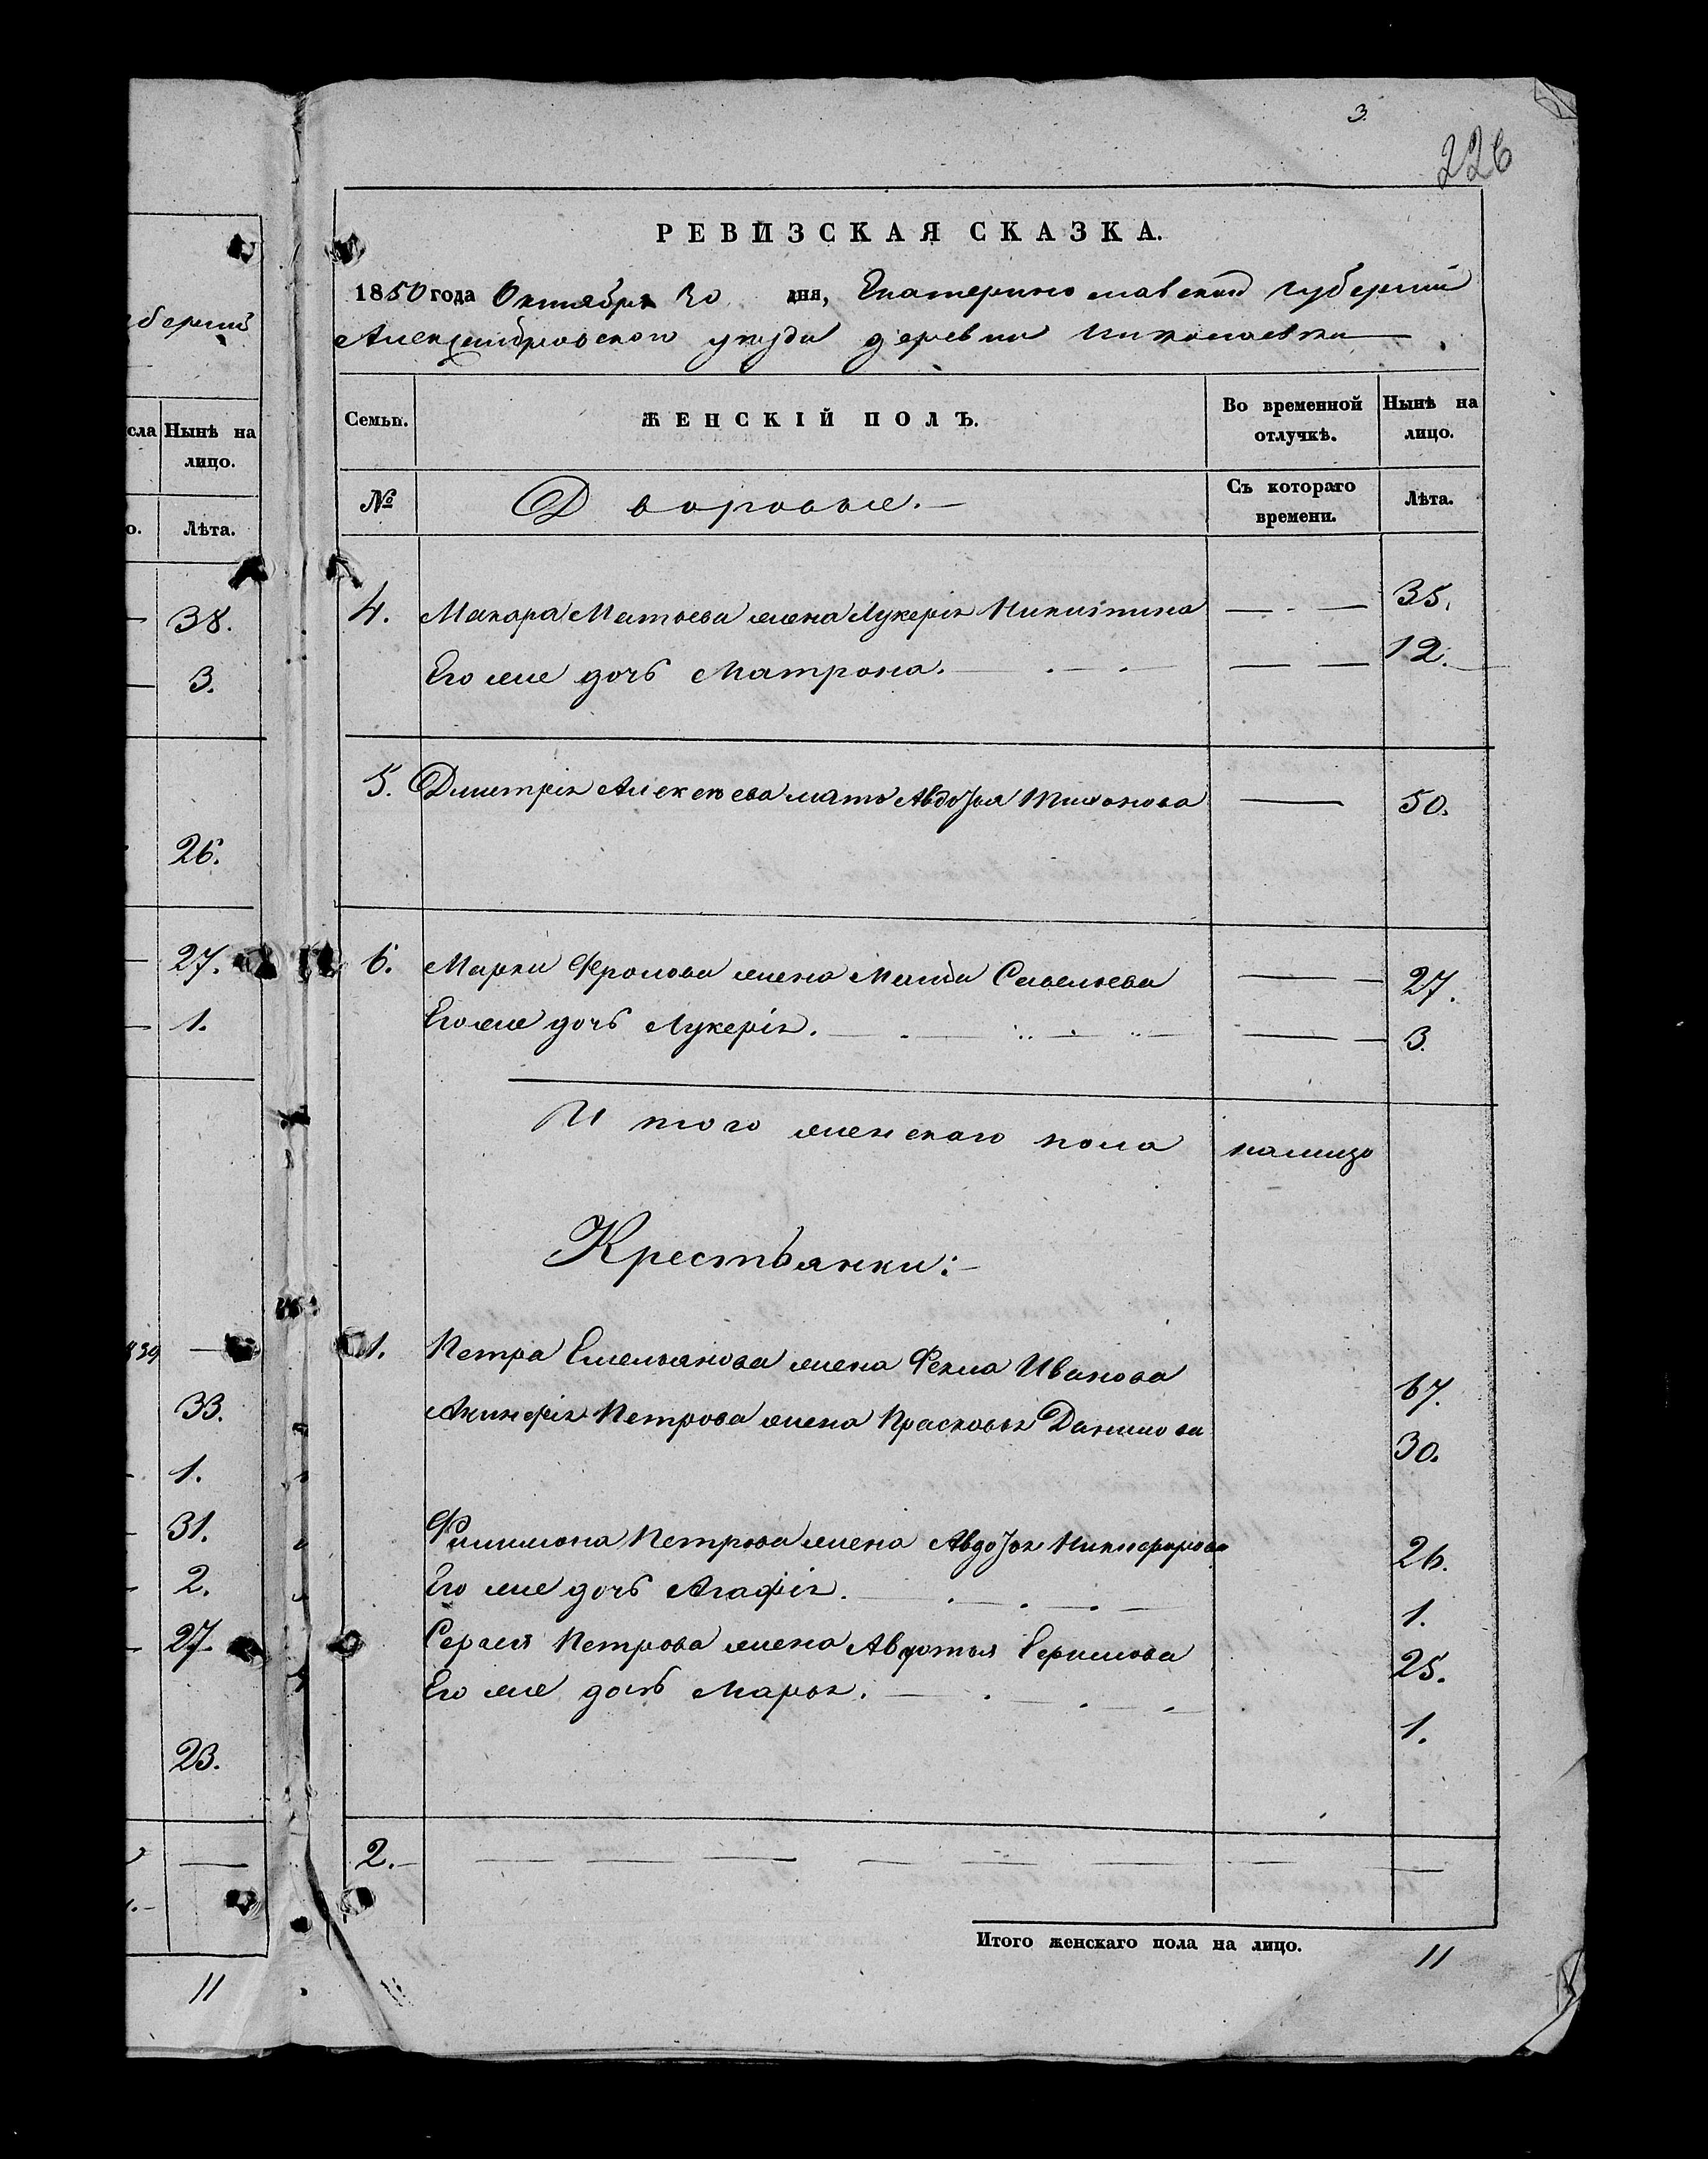 3.
226
РЕВИЗСКАЯ СКАЗКА.
1850 года Октября 30 дня, Екатеринославской губернии
Александровского уезда деревни Николаевки
Семьи.
ЖЕНСКІЙ ПОЛЪ.
Во временной отлучкѣ.
Нынѣ на лицо.
№
Дворовые.
Съ котораго времени.
Лѣта.
4. Макара Матвева жена Лукерія Никитина — 35.
Его же дочь Матрона. — 12.
5. Дмитрія Алексеева мать Авдотья — 50.
6. Марки Фролова жена Савельева — 27.
Его же дочь Лукерія. — 3.
Итого женскаго пола налицо
Крестьянки:
1. Петра Емельянова жена Фекла Иванова 67.
Акинфія Петрова жена Прасковья Данилова 30.
Филимона Петрова жена Авдотья Никифорова 26.
Его же дочь Агафія. 1.
Сергея Петрова жена Авдотья 25.
Его же дочь Марья. 1.
2. —
Итого женскаго пола на лицо. 11
бернии
сла
Нынѣ на лицо.
о.
Лѣта.
38.
3.
26.
27.
1.
839 —
33.
1.
31.
2.
27.
23.
—
11